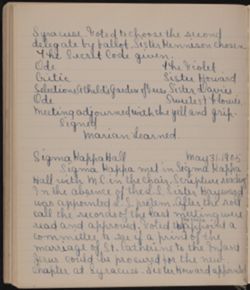 Syracuse. Voted to choose the second
delegate by ballot. Sister Kennison chosen
The Secret Code given.
Ode The Violet
Critic Sister Howard
Selections Sister Davies
Ode Sweetest Flower
Meeting adjourned with the yell and grip.
Signed
Marian Learned.
Sigma Kappa Hall May 31, 1905
Sigma Kappa met in Sigma Kappa
Hall with M.C. in the chair. Scripture reading
In the absence of the S.S. Sister
was appointed S.S. protem. After the roll
call the records of the last meeting were
read and approved. Voted to appoint a
committee to see if a print of the
marriage of St. Catherine to the Infant
Jesus could be procured for the new
chapter at Syracuse. Sister Howard appoint